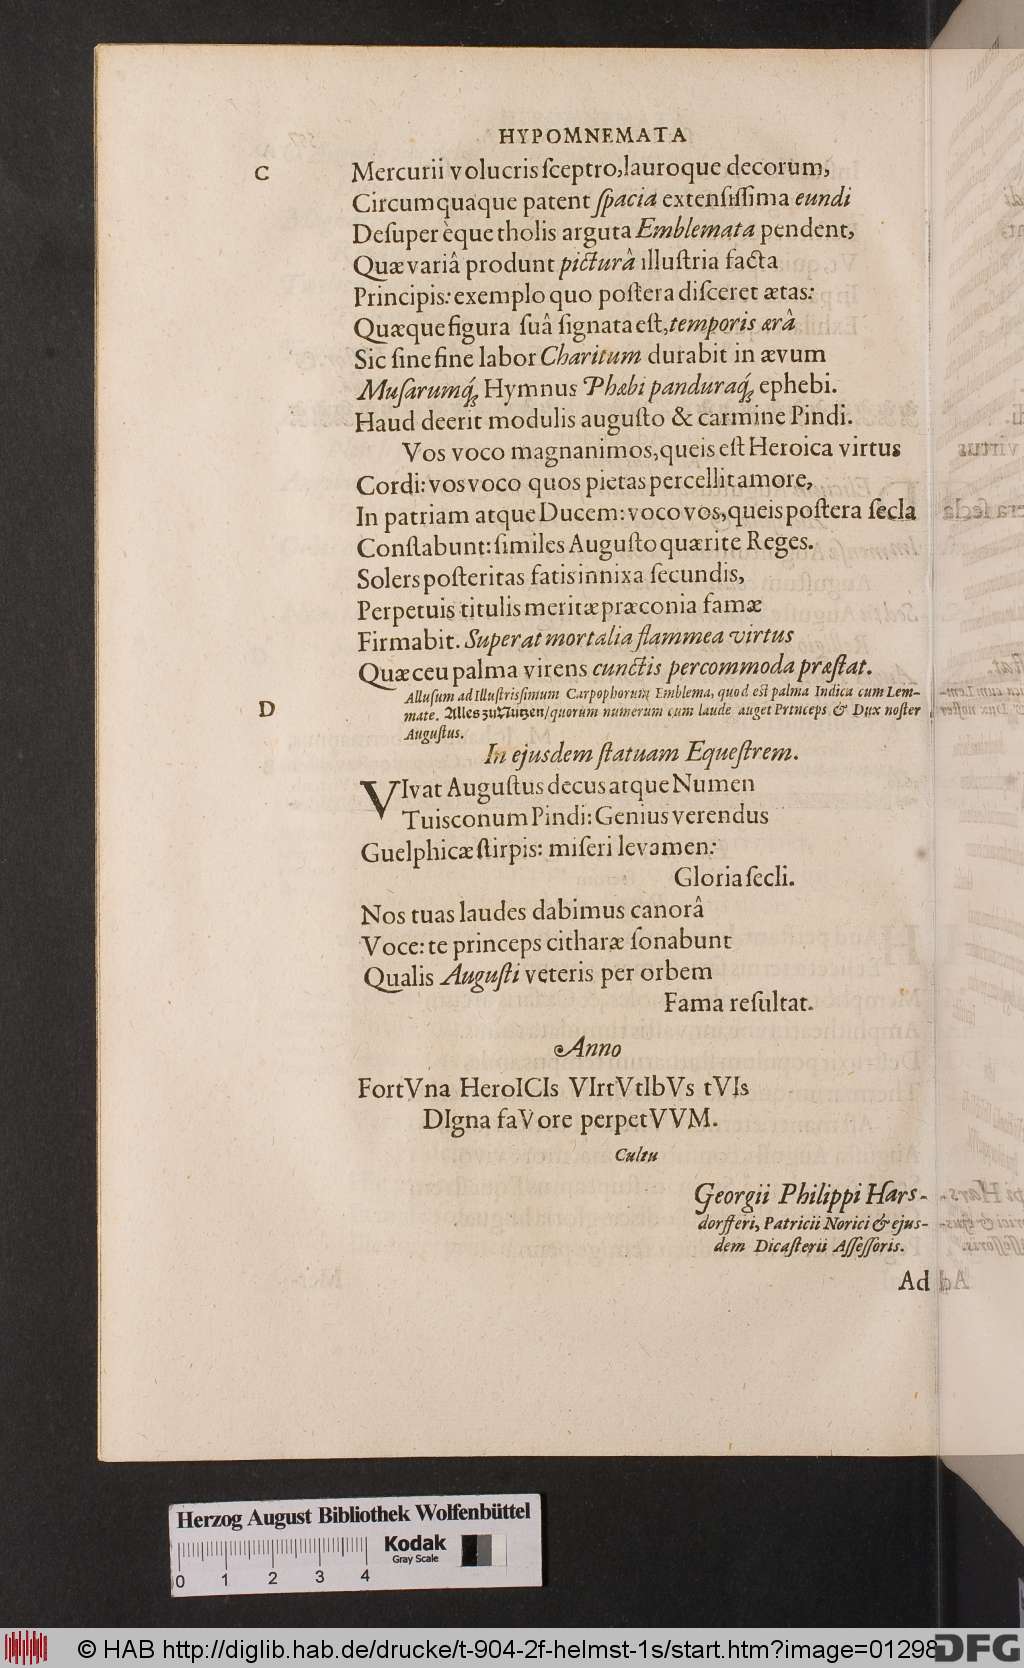 HYPOMNEMATA
C
Mercurii volucris ſceptro, lauroque decorum,
Circumquaque patent ſpacia extenſiſſima eundi
Deſuper èque tholis arguta Emblemata pendent,
Quæ variâ produnt picturâ illuſtria facta
Principis: exemplo quo poſtera diſceret ætas:
Quæque figura ſuâ ſignata eſt, temporis ærâ
Sic ſine fine labor Charitum durabit in ævum
Muſarumq́; Hymnus Phœbi panduraq́; ephebi.
Haud deerit modulis auguſto & carmine Pindi.
Vos voco magnanimos, queis eſt Heroica virtus
Cordi: vos voco quos pietas percellit amore,
In patriam atque Ducem: voco vos, queis poſtera ſecla
Conſtabunt: ſimiles Auguſto quærite Reges.
Solers poſteritas fatis innixa ſecundis,
Perpetuis titulis meritæ præconia famæ
Firmabit. Superat mortalia flammea virtus
Quæ ceu palma virens cunctis percommoda præſtat.
D
Alluſum ad Illuſtriſſimum Carpophorum Emblema, quod eſt palma Indica cum Lem-
mate. Alles zu Nutzen/ quorum numerum cum laude auget Princeps & Dux noſter
Auguſtus.
In ejusdem ſtatuam Equeſtrem.
VIvat Auguſtus decus atque Numen
Tuisconum Pindi: Genius verendus
Guelphicæ ſtirpis: miſeri levamen:
Gloria ſecli.
Nos tuas laudes dabimus canorâ
Voce: te princeps citharæ ſonabunt
Qualis Auguſti veteris per orbem
Fama reſultat.
Anno
FortVna HeroICIs VIrtVtIbVs tVIs
DIgna faVore perpetVVM.
Cultu
Georgii Philippi Hars-
dorfferi, Patricii Norici & ejus-
dem Dicaſterii Aſſeſſoris.
Ad
Herzog August Bibliothek Wolfenbüttel
Kodak
Gray Scale
0 1 2 3 4
© HAB http://diglib.hab.de/drucke/t-904-2f-helmst-1s/start.htm?image=01298
DFG